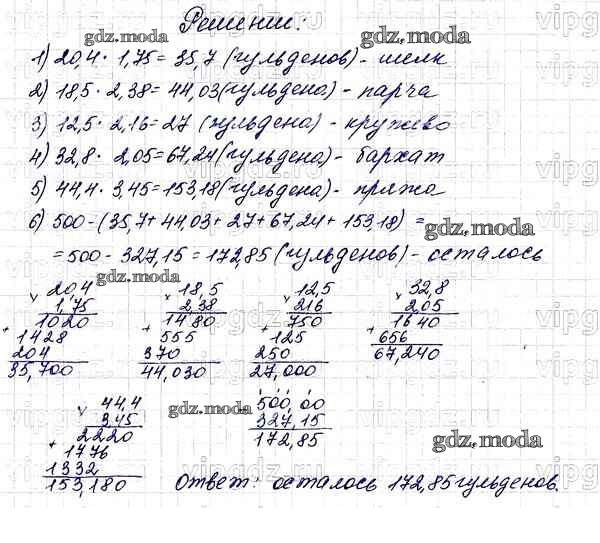 Решение:
1) 20,4 · 1,75 = 35,7 (гульденов) - шелк
2) 18,5 · 2,38 = 44,03 (гульдена) - парча
3) 12,5 · 2,16 = 27 (гульдена) - кружево
4) 32,8 · 2,05 = 67,24 (гульдена) - бархат
5) 44,4 · 3,45 = 153,18 (гульдена) - пряжа
6) 500 - (35,7 + 44,03 + 27 + 67,24 + 153,18) =
= 500 - 327,15 = 172,85 (гульденов) - осталось
20,4 18,5 12,5 32,8
× 1,75 × 2,38 × 216 × 2,05
1020 1480 750 1640
+ 1428 + 555 + 125 + 656
204 370 250 67,240
35,700 44,030 27,000
44,4 - 500,00
× 3,45 327,15
2220 172,85
+ 1776
1332
153,180 Ответ: осталось 172,85 гульденов.
gdz.moda
gdz.moda
gdz.moda
gdz.moda
gdz.moda
gdz.moda